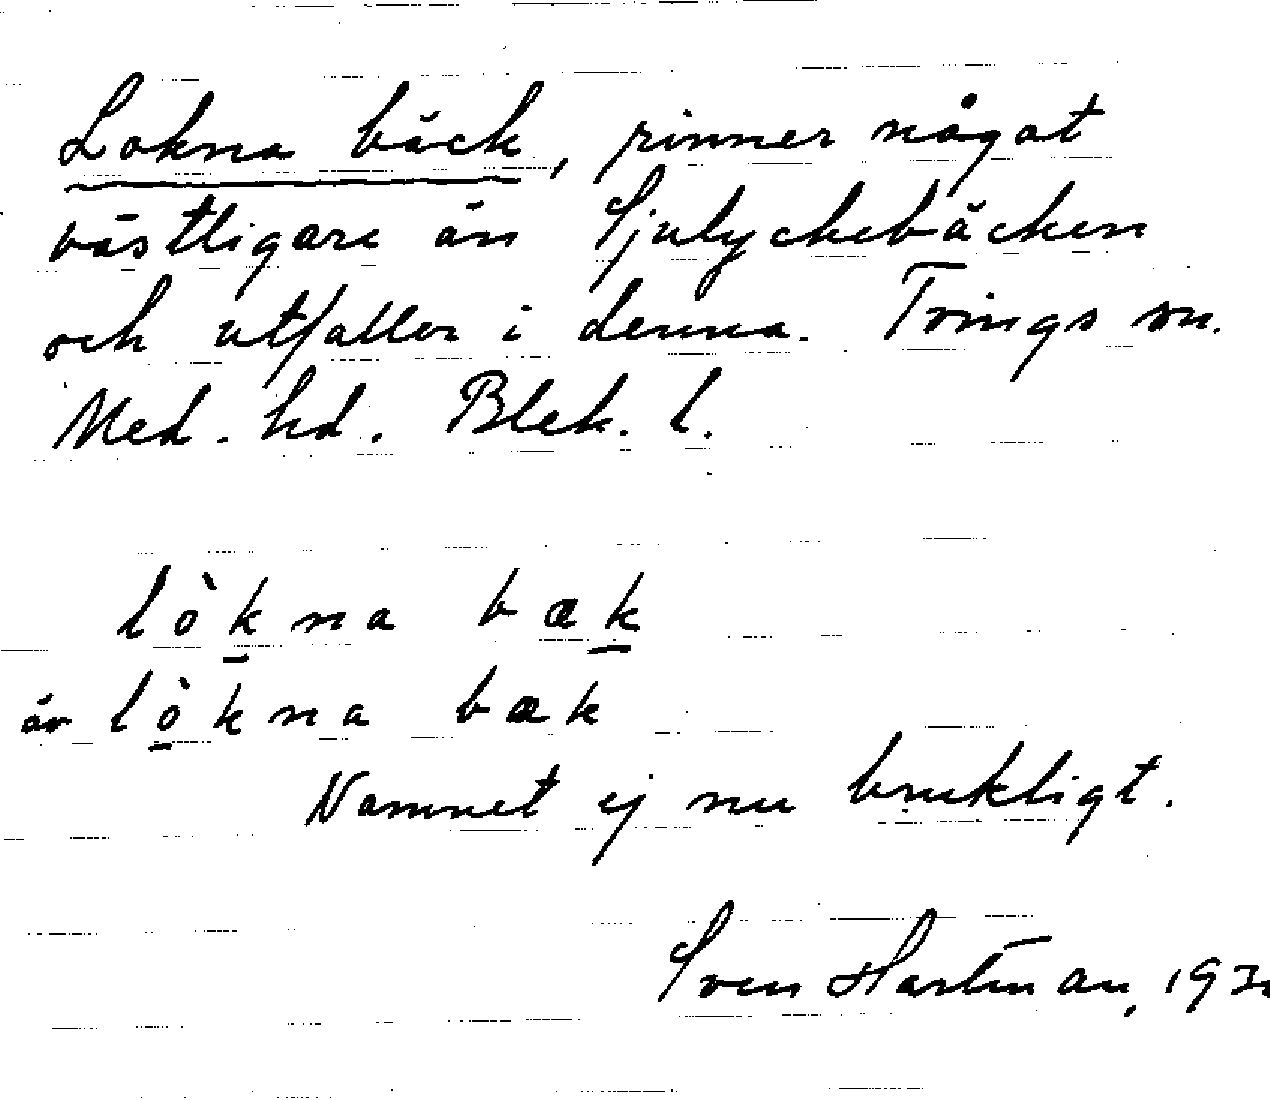 Lokna bäck, rinner något
västligare än Sjulyckebäcken
och utfaller i denna. Tvings sn.
Med. hd. Blek. l.
lòkna bæk
äv lòkna bæk
Namnet ej nu brukligt.
Sven Hartman, 193